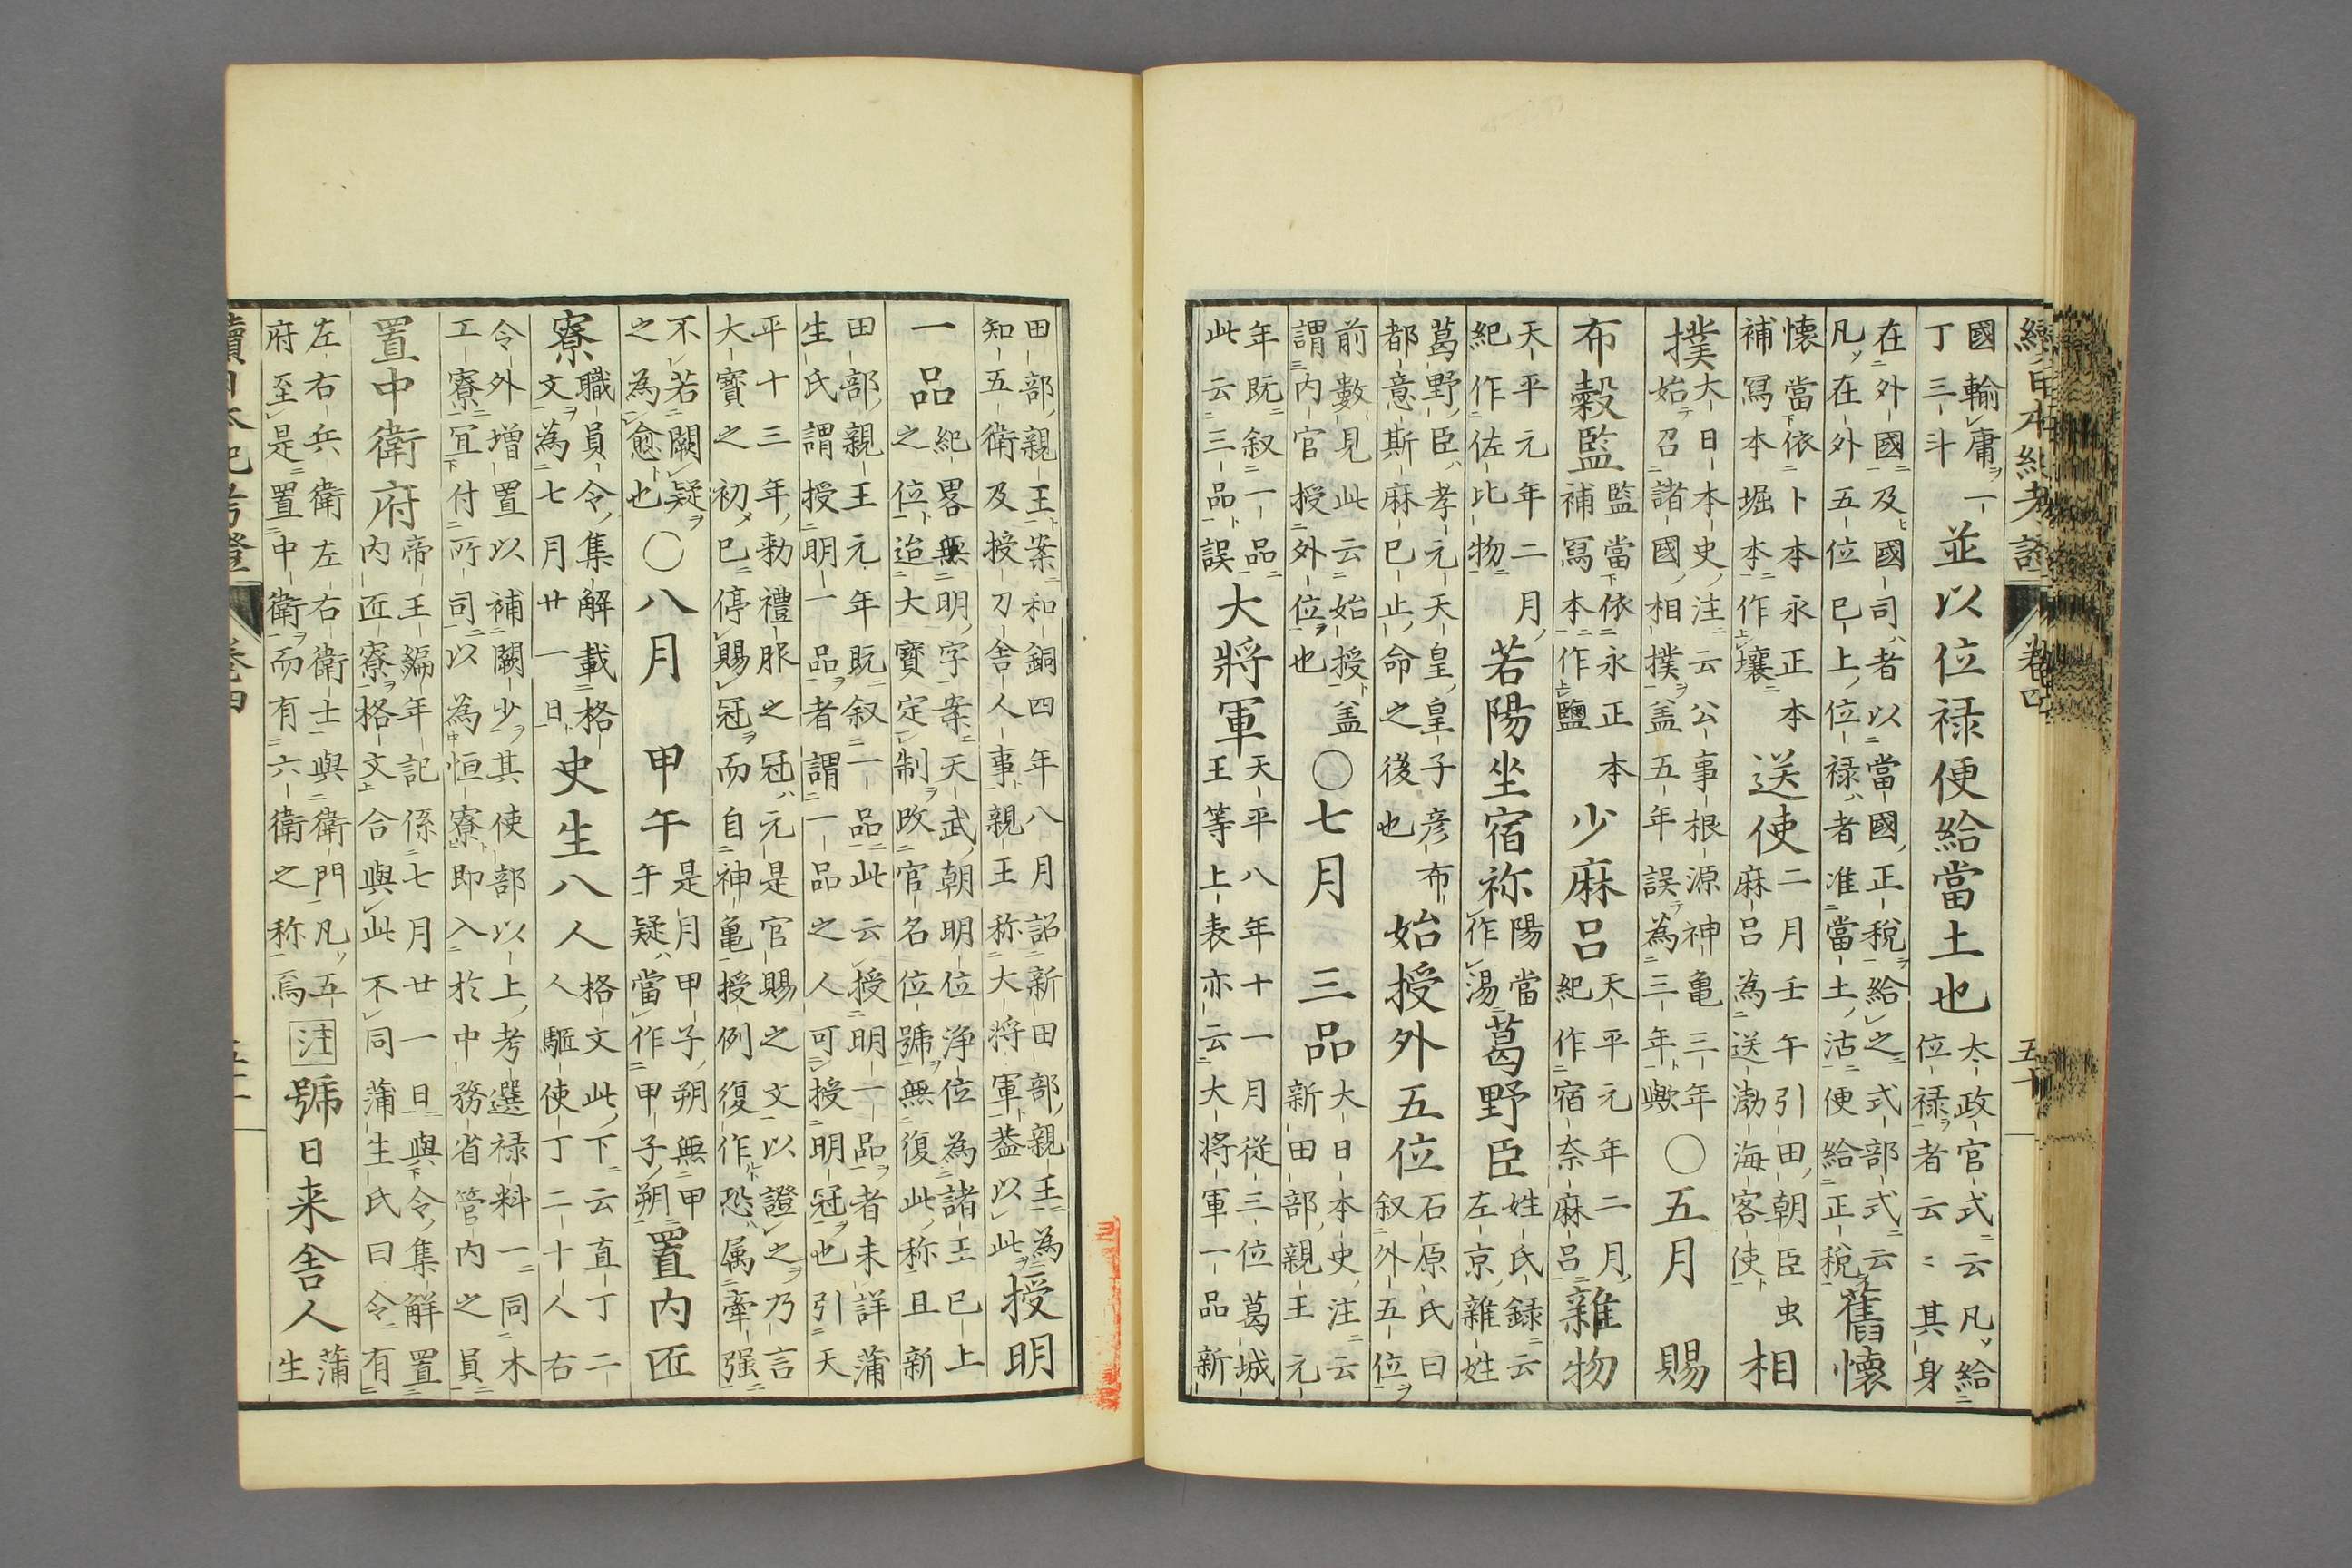 續日本紀考證 卷四 五十
國輸庸一丁三斗並以位禄便給當土也大政官式云凡給位禄者云〻其身
在外國及國司者以當國正税給之式部式云凡在外五位已上位禄者准當土沽便給正税舊懷
懷當依卜本永正本補冩本堀本作壤送使二月壬午引田朝臣虫麻呂為送渤海客使相
撲大日本史注云公事根源神亀三年始召諸國相撲盖五年誤為三年歟〇五月 賜
布穀監監當依永正本補冩本作鹽少麻呂天平元年二月紀作宿奈麻呂雜物
天平元年二月紀作佐比物若陽坐宿祢陽當作湯葛野臣姓氏録云左京雜姓
葛野臣孝元天皇皇子彦布都意斯麻已止命之後也始授外五位石原氏曰叙外五位
前數見此云始授盖謂内官授外位也〇七月 三品大日本史注云新田部親王元
年既叙一品此云三品誤大將軍天平八年十一月從三位葛城王等上表亦云大将軍一品新
田部親王案和銅四年八月詔新田部親王為知五衛及授刀舎人事親王称大将軍葢以此授明
一品紀畧無明字案天武朝明位浄位為諸王已上之位迨大寳定制改官名位號無復此称且新
田部親王元年既叙一品此云授明一品者未詳蒲生氏謂授明一品者謂一品之人可授明冠也引天
平十三年勅禮服之冠元是官賜之文以證之乃言大寳之初已停賜冠而自神亀授例復作恐属牽强
不若闕疑之為愈也〇八月 甲午是月甲子朔無甲午疑當作甲子朔置内匠
寮職員令集解載格文為七月廿一日史生八人格文此下云直丁二人駈使丁二十人右
令外増置以補闕少其使部以上考選禄料一同木工寮冝付所司以為恒寮即入於中務省管内之員
置中衛府帝王編年記係七月廿一日與令集解置内匠寮格文合與此不同蒲生氏曰令有
左右兵衛左右衛士與衛門凡五府至是置中衛而有六衛之称焉注號曰来舎人蒲生